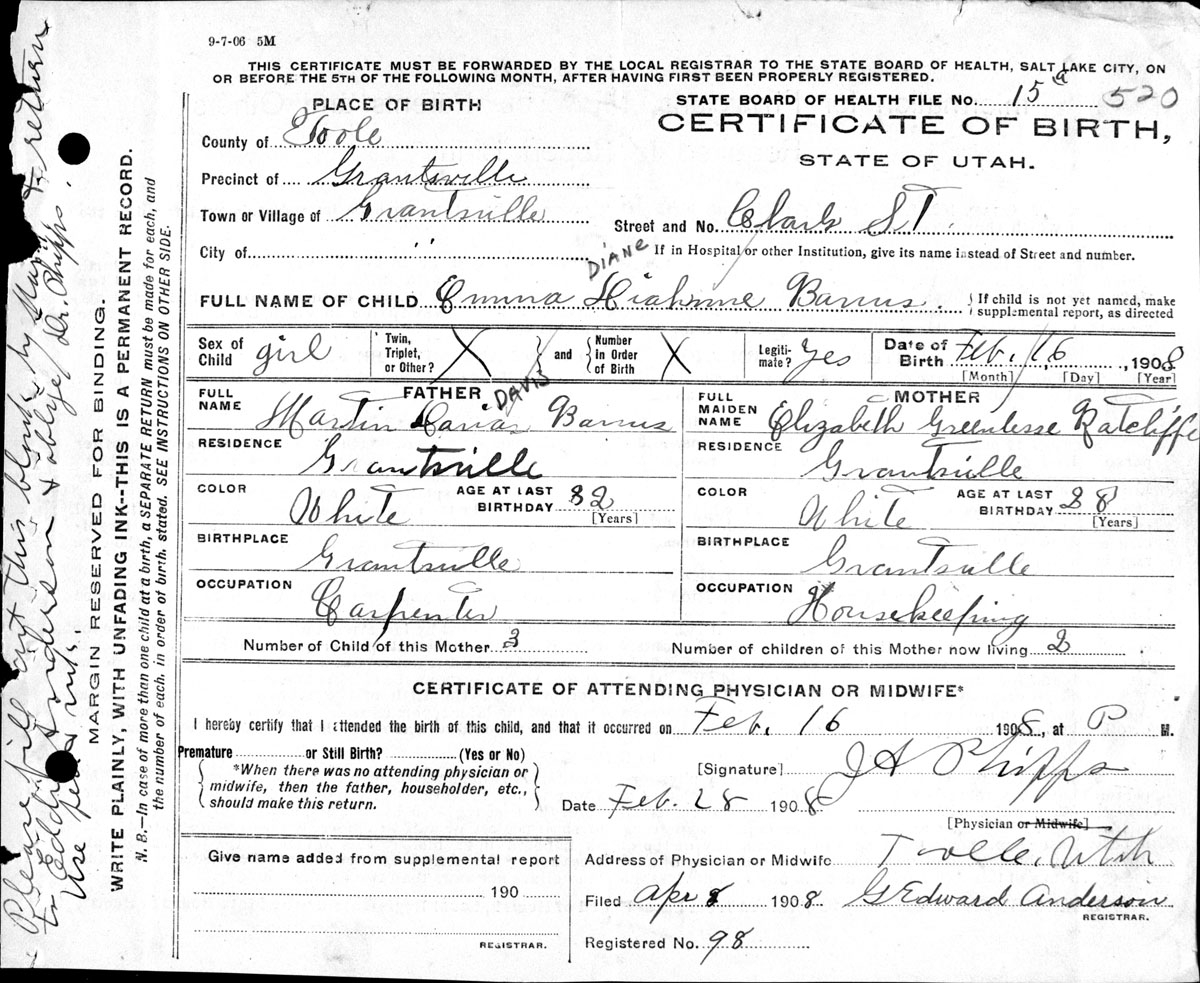 9-7-06 5M
THIS CERTIFICATE MUST BE FORWARDED BY THE LOCAL REGISTRAR TO THE STATE BOARD OF HEALTH, SALT LAKE CITY, ON
OR BEFORE THE 5TH OF THE FOLLOWING MONTH, AFTER HAVING FIRST BEEN PROPERLY REGISTERED.
PLACE OF BIRTH
STATE BOARD OF HEALTH FILE No. 15 a 520
CERTIFICATE OF BIRTH,
STATE OF UTAH.
County of Tooele
Precinct of Grantsville
Town or Village of Grantsville
Street and No. Clark ST.
City of ''
If in Hospital or other Institution, give its name instead of Street and number.
DIANE
FULL NAME OF CHILD Emma Barrus
If child is not yet named, make
supplemental report, as directed
Sex of Child girl
Twin, Triplet, or Other? X
and Number in Order of Birth X
Legiti- mate? Yes
Date of Birth Feb. 16, 1908
[Month] [Day] [Year]
FATHER
DAVIS
FULL NAME Martin Barrus
RESIDENCE Grantsville
COLOR White
AGE AT LAST BIRTHDAY 32
[Years]
BIRTHPLACE Grantsville
OCCUPATION Carpenter
MOTHER
FULL MAIDEN NAME Elizabeth Greenlesse Ratcliffe
RESIDENCE Grantsville
COLOR White
AGE AT LAST BIRTHDAY 28
[Years]
BIRTHPLACE Grantsville
OCCUPATION Housekeeping
Number of Child of this Mother 3
Number of children of this Mother now living 2
CERTIFICATE OF ATTENDING PHYSICIAN OR MIDWIFE*
I hereby certify that I attended the birth of this child, and that it occurred on Feb. 16 1908, at P M.
Premature or Still Birth? (Yes or No)
*When there was no attending physician or
midwife, then the father, householder, etc.,
should make this return.
[Signature] J A Phipps
Date Feb. 28 1908
[Physician or Midwife]
Give name added from supplemental report
190
REGISTRAR.
Address of Physician or Midwife Tooele, Utah
Filed Apr 8 1908 G Edward Anderson
REGISTRAR.
Registered No. 98
MARGIN RESERVED FOR BINDING.
WRITE PLAINLY, WITH UNFADING INK--THIS IS A PERMANENT RECORD.
N. B.—In case of more than one child at a birth, a SEPARATE RETURN must be made for each, and
the number of each. in order of birth. stated. SEE INSTRUCTIONS ON OTHER SIDE.
Please fill out this blank by & return
to Eddy Anderson & oblige Dr. Phipps.
Use pen & ink.